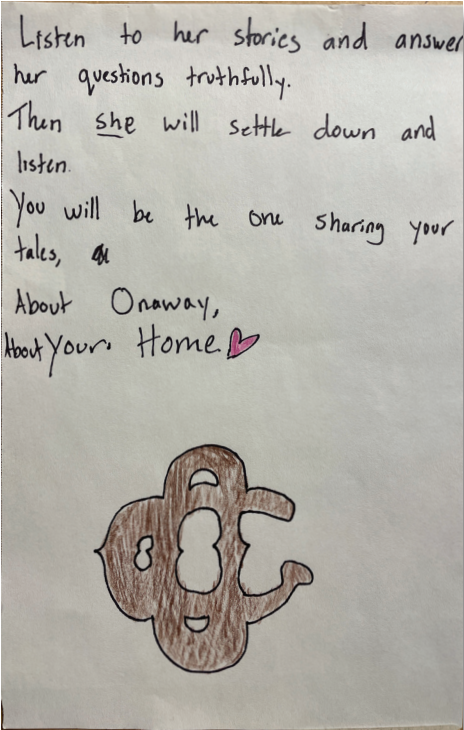 Listen to her stories and answer
her questions truthfully.
Then she will settle down and
listen.
You will be the one sharing your
tales,
About Onaway,
About Your Home